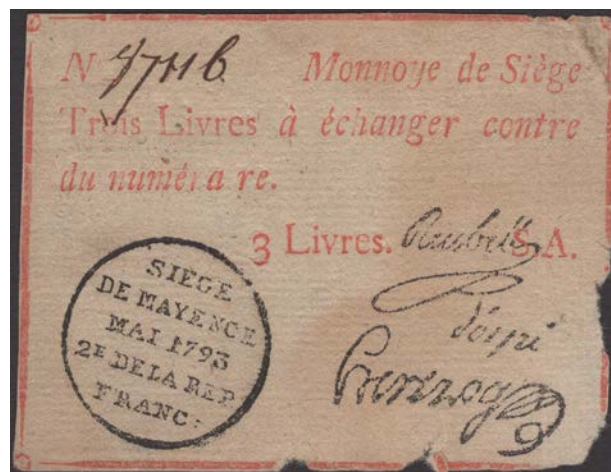 N Monnoye de Siège
Trois Livres à échanger contre
du numéraire.
3 Livres. Reubell S.A.
SIEGE
DE MAYENCE
MAI 1793
2E DE LA REP
FRANC: